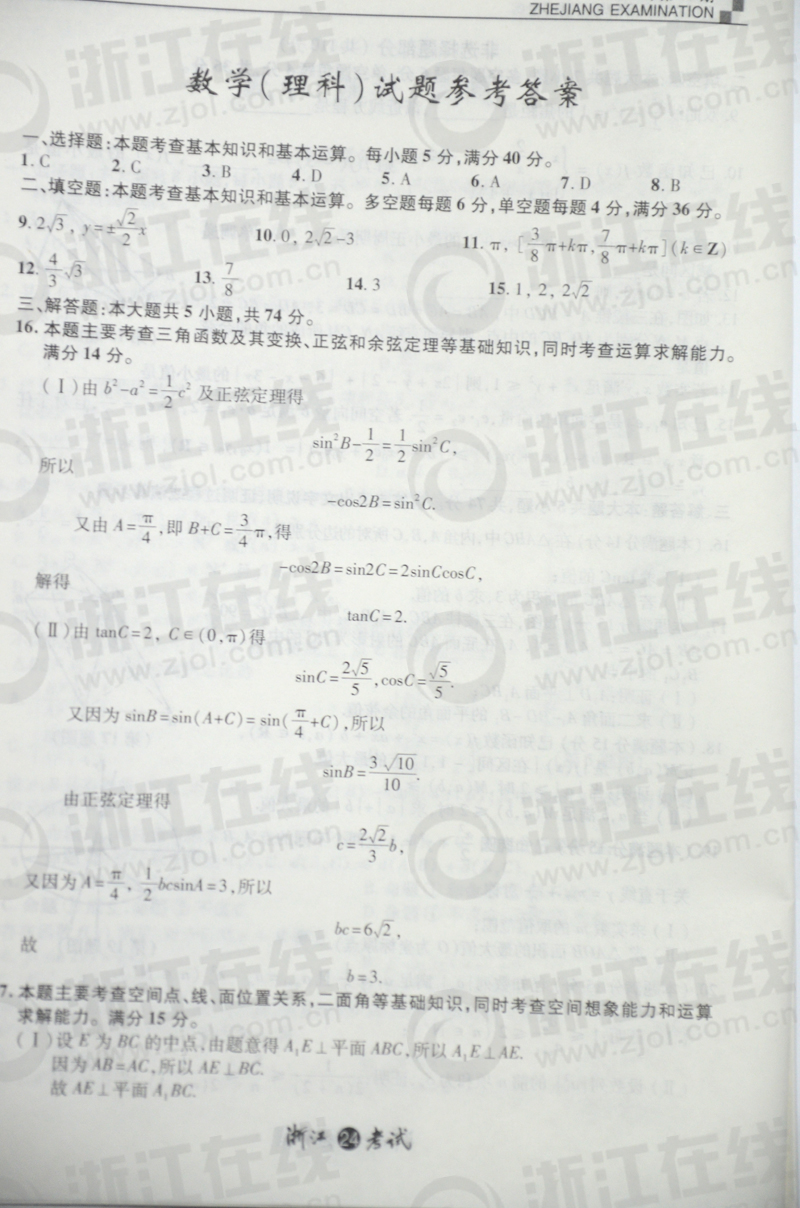 ZHEJIANG EXAMINATION
数学(理科)试题参考答案
一、选择题:本题考查基本知识和基本运算。每小题 5 分,满分 40 分。
1. C 2. C 3. B 4. D 5. A 6. A 7. D 8. B
二、填空题:本题考查基本知识和基本运算。多空题每题 6 分,单空题每题 4 分,满分 36 分。
9. 2√3, y=±(√2/2)x 10. 0, 2√2-3 11. π, [3/8 π+kπ, 7/8 π+kπ](k∈Z)
12. 4/3 √3 13. 7/8 14. 3 15. 1, 2, 2√2
三、解答题:本大题共 5 小题,共 74 分。
16. 本题主要考查三角函数及其变换、正弦和余弦定理等基础知识,同时考查运算求解能力。
满分 14 分。
(Ⅰ)由 b²-a²=1/2 c² 及正弦定理得
sin²B-1/2=1/2 sin²C,
所以
-cos2B=sin²C.
又由 A=π/4,即 B+C=3/4 π,得
-cos2B=sin2C=2sinCcosC,
解得
tanC=2.
(Ⅱ)由 tanC=2, C∈(0,π)得
sinC=2√5/5,cosC=√5/5.
又因为 sinB=sin(A+C)=sin(π/4+C),所以
sinB=3√10/10.
由正弦定理得
c=2√2/3 b,
又因为 A=π/4, 1/2 bcsinA=3,所以
bc=6√2,
故
b=3.
7. 本题主要考查空间点、线、面位置关系,二面角等基础知识,同时考查空间想象能力和运算
求解能力。满分 15 分。
(Ⅰ)设 E 为 BC 的中点,由题意得 A₁E⊥平面 ABC,所以 A₁E⊥AE.
因为 AB=AC,所以 AE⊥BC.
故 AE⊥平面 A₁BC.
浙江 24 考试
浙江在线
www.zjol.com.cn